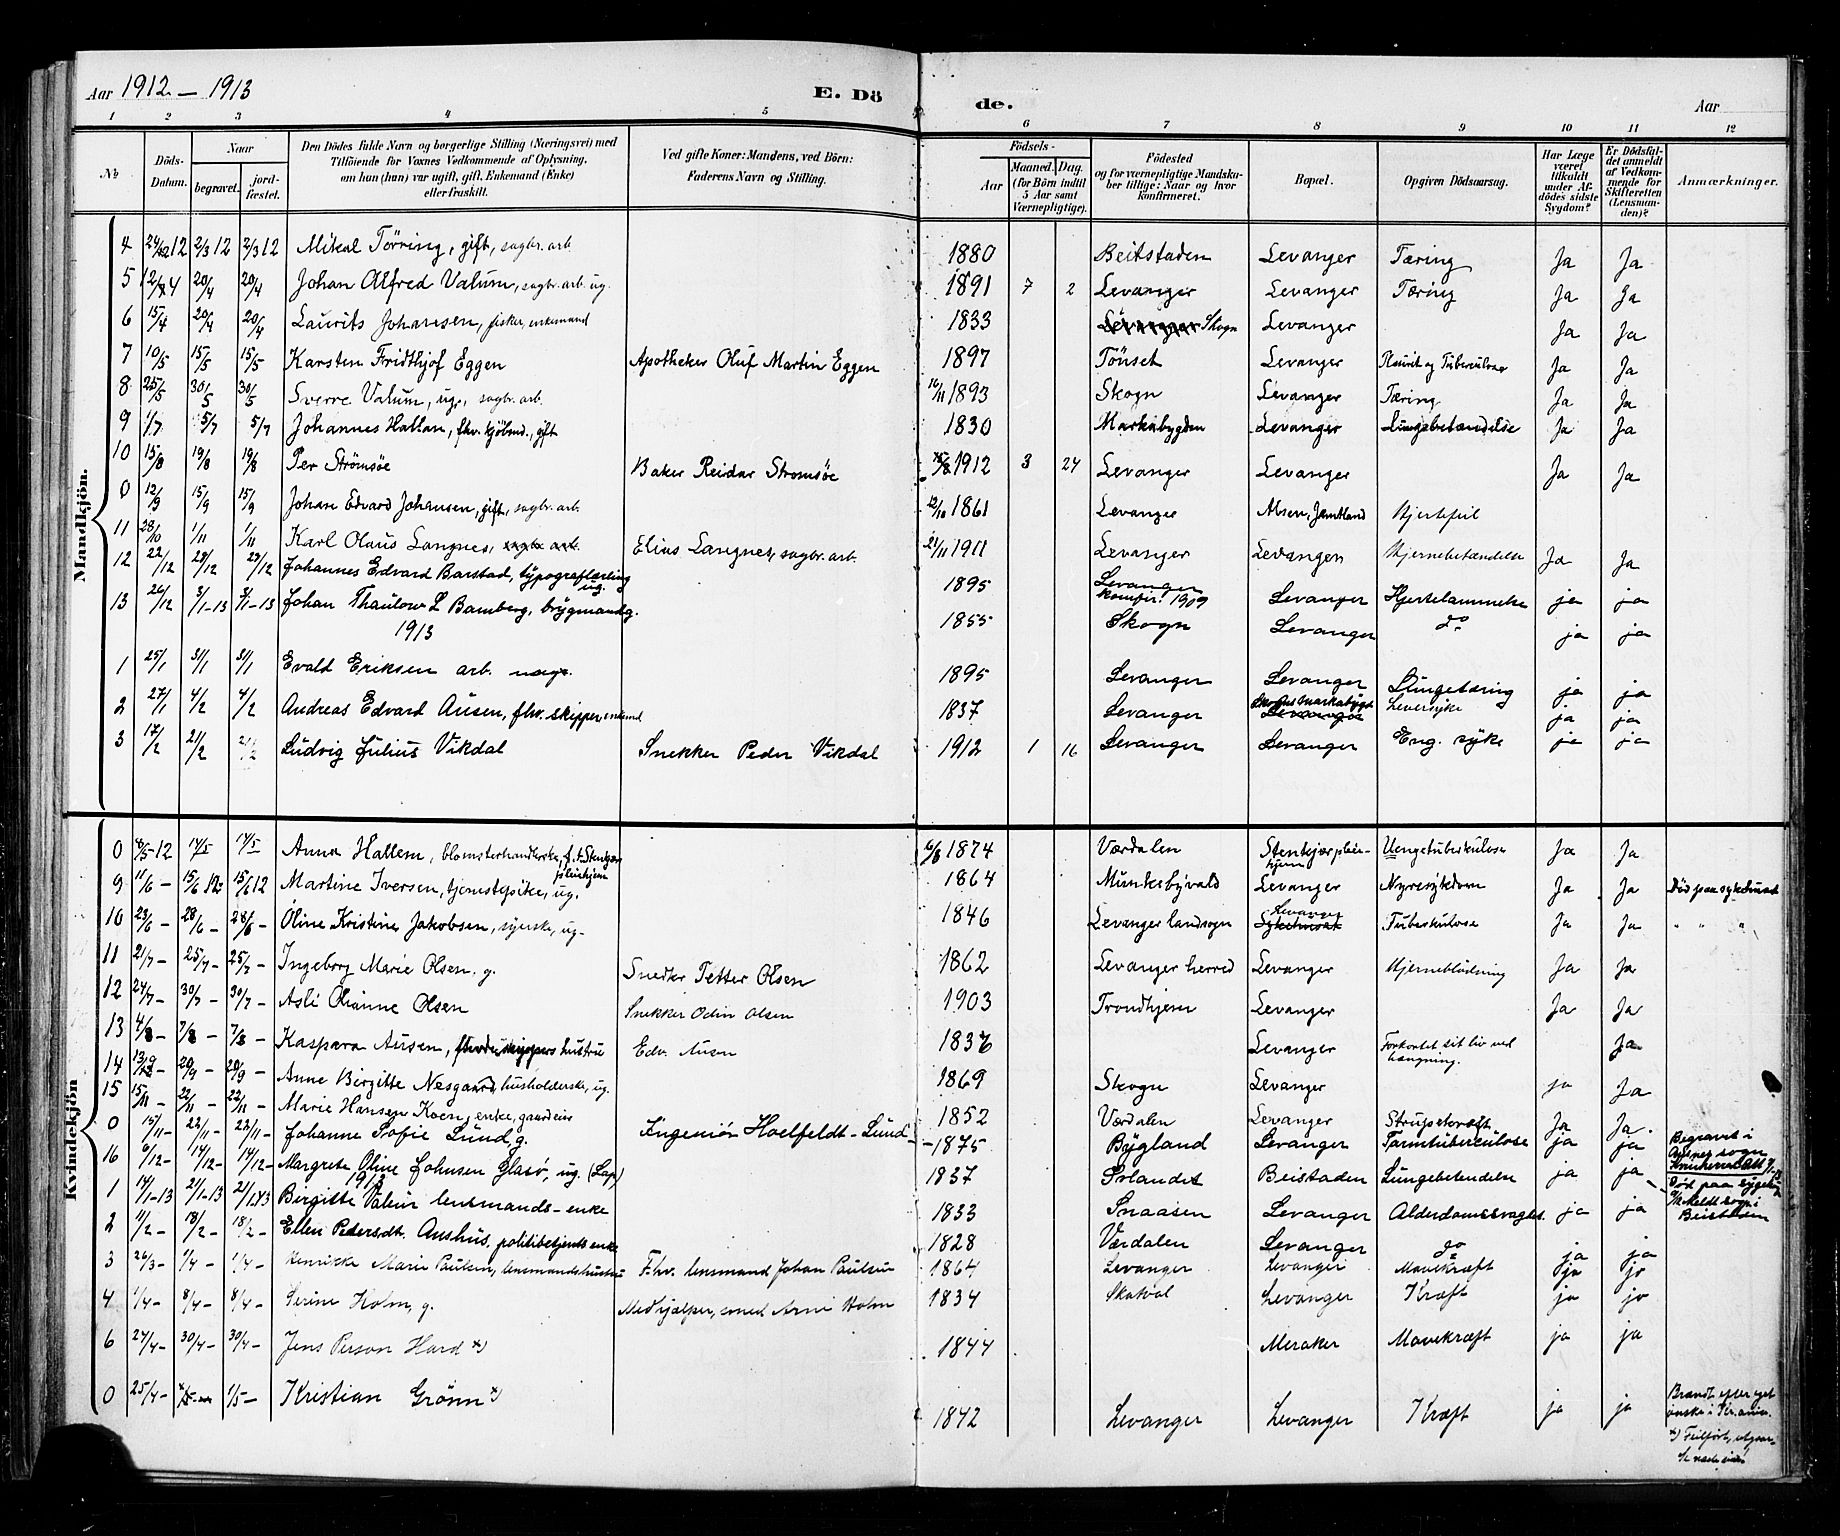 Aar 1912 — 1913 E. Dö de. Aar
1 2 3 4 5 6 7 8 9 10 11 12
No
Döds-Datum.
Naar
begravet.
jord-fæstet.
Den Dödes fulde Navn og borgerlige Stilling (Næringsvei) med
Tilföiende for Voxnes Vedkommende af Oplysning,
om han (hun) var ugift, gift, Enkemand (Enke)
eller fraskilt.
Ved gifte Koner: Mandens, ved Börn:
Faderens Navn og Stilling.
Födsels-
Aar
Maaned. Dag.
(for Börn indtil
5 Aar samt
Værnepligtige).
Födested
og for værnepligtige Mandska-
ber tillige: Naar og hvor
konfirmeret.
Bopæl.
Opgiven Dödsaarsag.
Har Læge
været
tilkaldt
under Af-
dödes sidste
Sygdom?
Er Dödsfal-
det anmeldt
af Vedkom-
mende for
Skifteretten
(Lensman-
den)?
Anmærkninger.
Mandkjön.
4 12 2/3 12 2/3 12 Mikal Törring, gift, sagbr. arb. 1880 Beitstaden Levanger Tæring Ja Ja
5 12/4 20/4 20/4 Johan Alfred Valum, sagbr. arb. ug. 1891 7 2 Levanger Levanger Tæring Ja Ja
6 15/4 20/4 20/4 Laurits Johansen, fisker, enkemand 1833 Levanger Skogn Levanger Ja Ja
7 10/5 15/5 15/5 Karsten Fridthjof Eggen Apotheker Oluf Martin Eggen 1897 Tönset Levanger Pleurit og Tuberculose Ja Ja
8 25/5 30/5 30/5 Sverre Valum, ug., sagbr. arb. 16/11 1893 Skogn Levanger Tæring Ja Ja
9 1/7 5/7 5/7 Johannes Hallan, fhv. kjöbmd., gift 1830 Markabygden Levanger Lungebetændelse Ja Ja
10 15/8 19/8 19/8 Per Strömsöe Baker Reidar Stromsöe 1912 3 24 Levanger Levanger Ja Ja
0 12/9 15/9 15/9 Johan Edvard Johansen, gift, sagbr. arb. 12/10 1861 Levanger Alsen, Jemtland Hjertefeil
11 28/10 1/11 1/11 Karl Olaus Langnes, sagbr. arb. Elias Langnes, sagbr. arb. 21/11 1911 Levanger Levanger Hjernebetændelse Ja Ja
12 22/12 29/12 29/12 Johannes Edvard Barstad, typograflærling ug. 1895 Levanger konfir. 1909 Levanger Hjertelammelse ja ja
13 26/12 3/1-13 3/1-13 Johan Thaulow L Bamberg, brygmand g. 1855 Skogn Levanger do ja ja
1913
1 25/1 31/1 31/1 Evald Eriksen arb. 1895 Levanger Levanger Lungetæring ja ja
2 27/1 4/2 4/2 Andreas Edvard Ausen, fhv. skipper enkmd 1837 Levanger Levanger Leversyke ja ja
3 17/2 21/2 21/2 Ludvig Julius Vikdal Snekker Peder Vikdal 1912 1 16 Levanger Levanger Eng. syke ja ja
Kvindekjön
0 12 14/5 14/5 Anna Hallem, blomsterhandlerske, f. t. Stenkjær pleiehjem 1874 Værdalen Stenkjær pleie-hjem Lungetuberkulose Ja Ja
9 11/6 — 15/6 12 15/6 12 Martine Iversen, tjenestepike, ug. 1864 Munkebyvald Levanger Nyresykdom Ja Ja Död paa sykehuset
10 23/6 — 28/6 — 28/6 — Oline Kristine Jakobsen, syerske, ug — 1846 Levanger landsogn Levanger Sykehuset Tuberkulose Ja Ja " " "
11 21/7 — 25/7 — 25/7 — Ingeborg Marie Olsen. g. Snedker Petter Olsen 1862 Levanger herred Levanger Hjerneblödning Ja Ja
12 24/7 — 30/7 — 30/7 — Asli Olianne Olsen Snekker Odin Olsen 1903 Trondhjem Levanger Ja Ja
13 4/8 — 7/8 — 7/8 — Kaspara Ausen, skippers hustru Edv. Ausen 1837 Levanger Forkortet sit liv ved hængning. Ja
14 20/9 — 20/9 — Anne Birgitte Nesgaard, husholderske, ug. 1869 Skogn Levanger ja Ja
15 15/11 — 22/11 — 22/11 — Marie Hansen Koen, enke, gaardeier 1852 Værdalen Levanger Strupekræft Ja Ja
0 15/11 — 22/11 — 22/11 — Johanne Sofie Lund, g. Ingeniör Hoelfeldt-Lund 1875 Bygland Levanger Tarmtuberculose ja ja Begravet i sogn
16 6/12 — 14/12 — 14/12 — Margrete Oline Johnsen Glasö, ug. (Lap) 1837 Beistaden Lungebetendelse ja ja Död paa sygehus
1913
1 14/1-13 21/1-13 21/1 13 Birgitte Valeur lensmands-enke 1833 Snaasen Levanger Alderdomssvaghet ja ja
2 11/2 — 18/2 — 18/2 — Ellen Pedersdt. Aushus, politibetjents enke 1828 Værdalen Levanger do ja ja
3 26/3 — 1/4 — 1/4 — Henrikke Marie Paulsen, lensmandshustru F. hv. lensmand Johan Paulsen 1864 Levanger Levanger Mavekræft ja ja
4 1/4 — 8/4 — 8/4 — Serine Holm, g. Medhjælper, smed Arnt Holm 1834 Skatval Levanger Kræft ja ja
6 24/4 — 30/4 — 30/4 — Jens Person Hard x) 1844 Meraker Mavekræft ja ja
0 25/4 — 1/5 — Kristian Grönn x) 1842 Levanger Levanger Kræft ja ja Brændt efter eget
önske i Kr.ania.
x) Feilfört, utgaar
se næste side